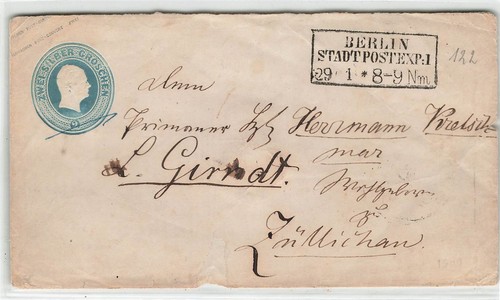 ZWEI SILBER GROSCHEN
2
BERLIN
STADTPOSTEXP:I
29 1 * 8-9 Nm
122
Primaner Herrmann
L. Girndt.
zu
Züllichau.